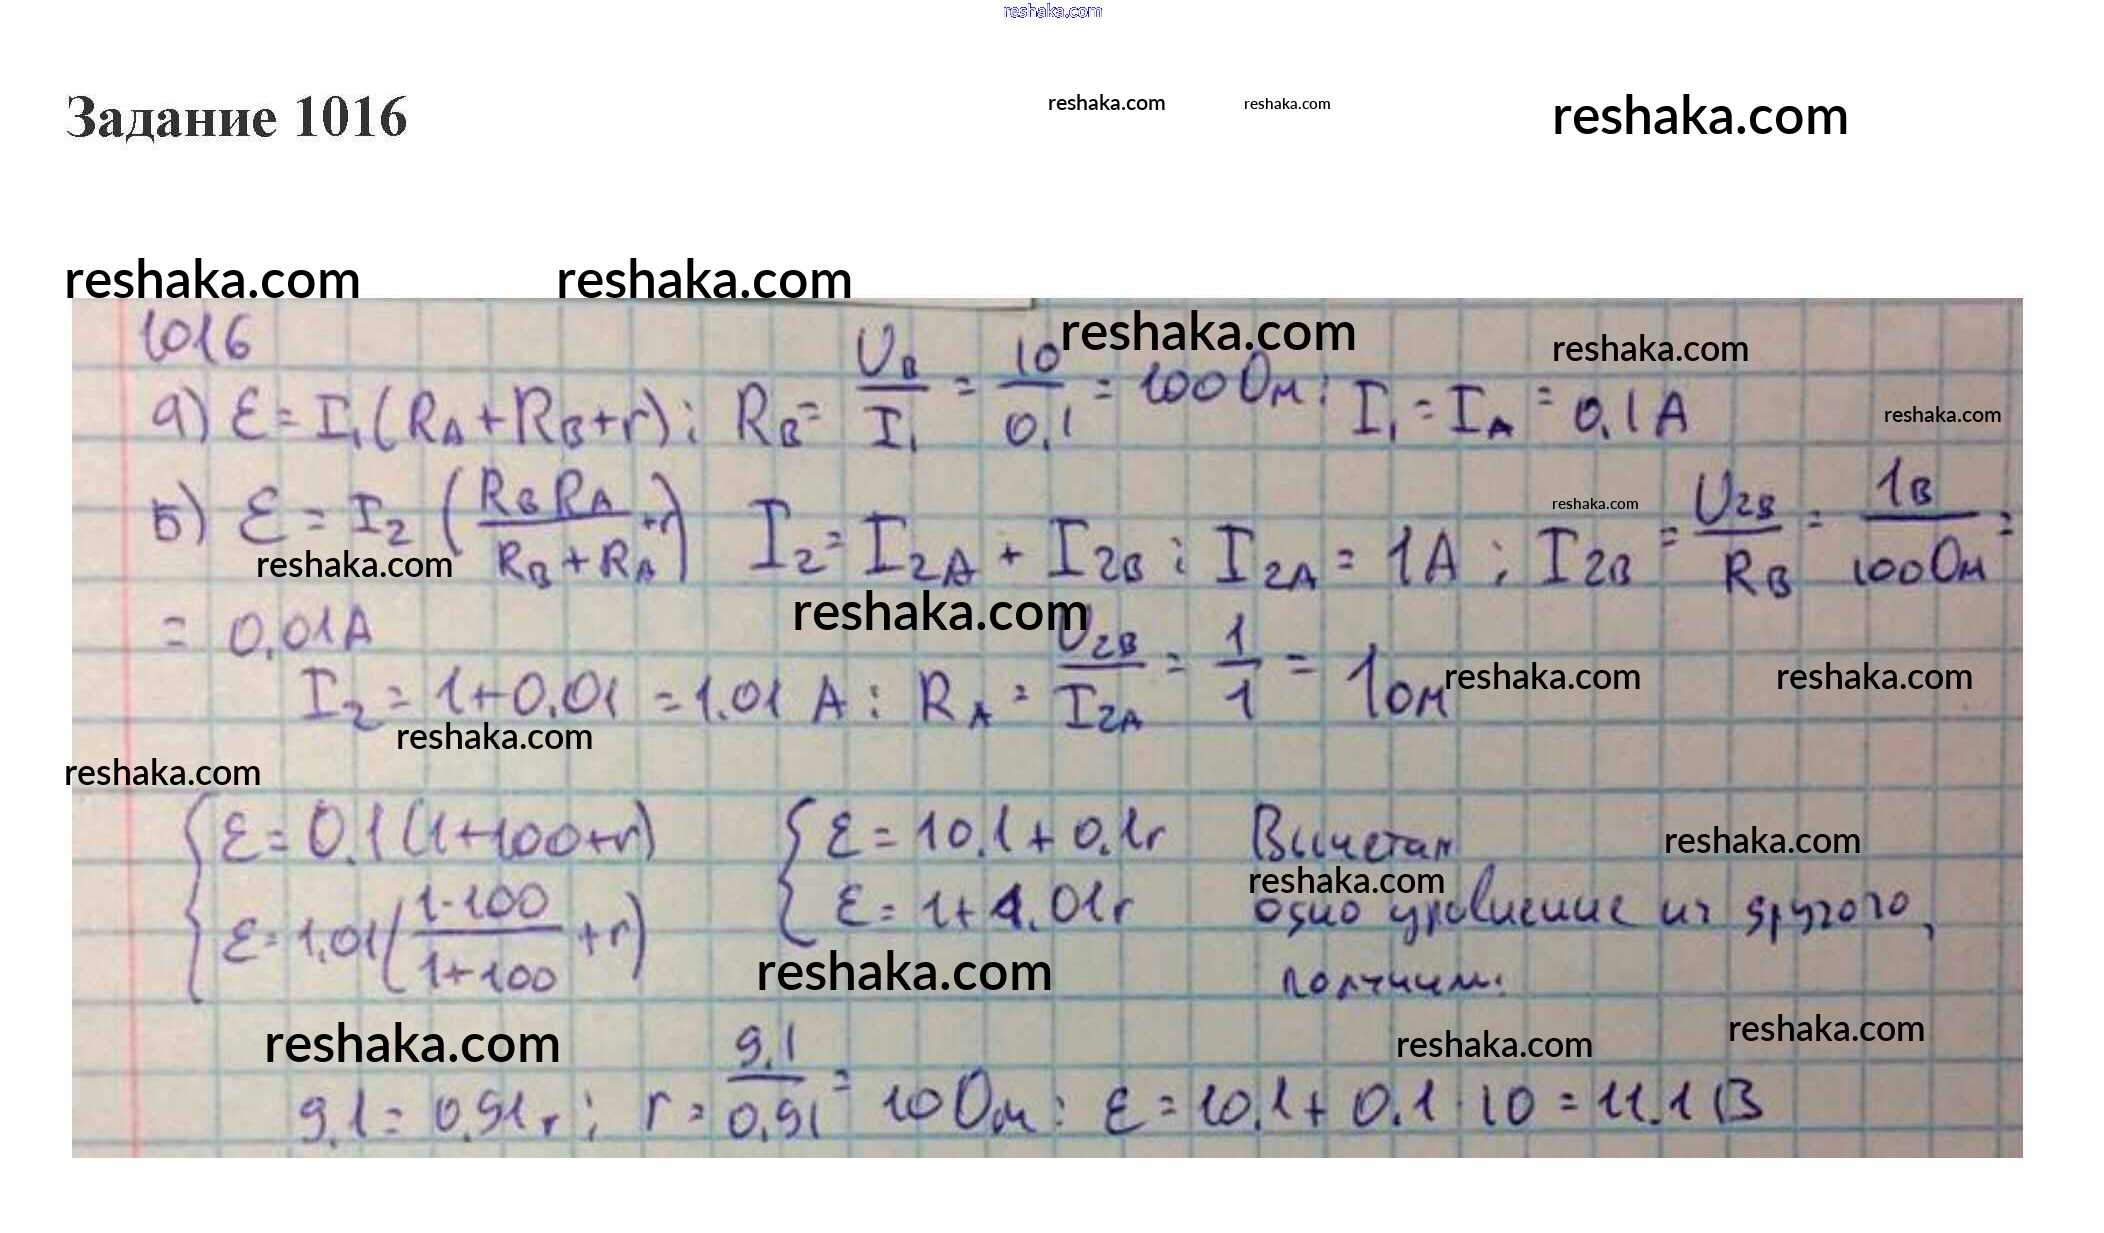 reshaka.com
Задание 1016
reshaka.com reshaka.com reshaka.com
reshaka.com reshaka.com
1016 reshaka.com reshaka.com
а) Ɛ = I₁(R_A + R_B + r); R_B = U_B/I₁ = 10/0.1 = 100 Ом; I₁ = I_A = 0.1 А reshaka.com
б) Ɛ = I₂ (R_B R_A/(R_B + R_A) + r) I₂ = I₂A + I₂B; I₂A = 1А; I₂B = U₂B/R_B = 1В/100 Ом = reshaka.com
reshaka.com reshaka.com
= 0.01А
I₂ = 1+0.01 = 1.01 А; R_A = U₂B/I₂A = 1/1 = 1 Ом reshaka.com reshaka.com
reshaka.com
reshaka.com
{ Ɛ = 0.1(1+100+r) { Ɛ = 10.1 + 0.1r Вычетам reshaka.com
reshaka.com
Ɛ = 1.01(1·100/(1+100) + r) Ɛ = 1 + 1.01r одно уравнение из другого,
reshaka.com получим:
reshaka.com reshaka.com reshaka.com
9.1 = 0.91r; r = 9.1/0.91 = 10 Ом; Ɛ = 10.1 + 0.1·10 = 11.1 В